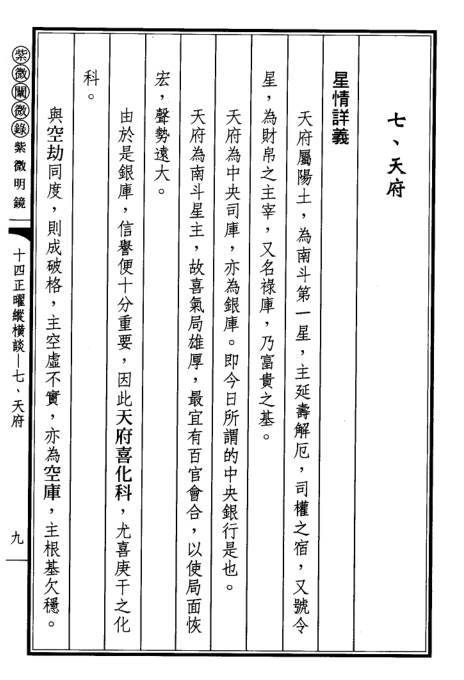 七、天府
星情詳義
天府屬陽土，為南斗第一星，主延壽解厄，司權之宿，又號令
星，為財帛之主宰，又名祿庫，乃富貴之基。
天府為中央司庫，亦為銀庫。即今日所謂的中央銀行是也。
天府為南斗星主，故喜氣局雄厚，最宜有百官會合，以使局面恢
宏，聲勢遠大。
由於是銀庫，信譽便十分重要，因此天府喜化科，尤喜庚干之化
科。
與空劫同度，則成破格，主空虛不實，亦為空庫，主根基欠穩。
紫微闡微錄 紫微明鏡
十四正曜縱橫談—七、天府
九